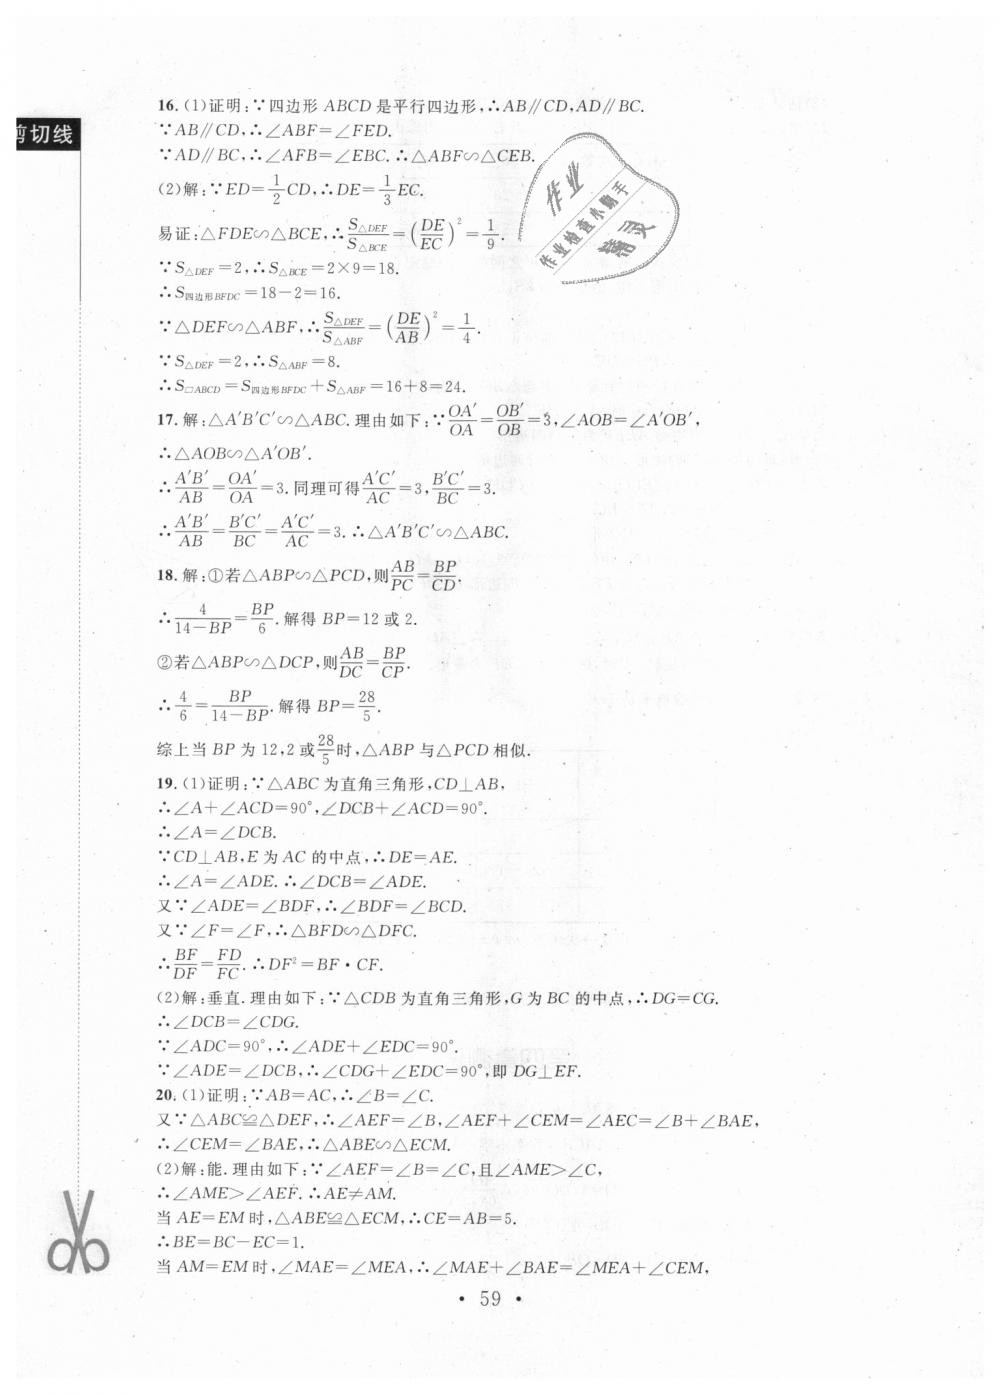 剪切线
16. (1)证明:∵四边形 ABCD 是平行四边形,∴AB∥CD,AD∥BC.
∵AB∥CD,∴∠ABF=∠FED.
∵AD∥BC,∴∠AFB=∠EBC. ∴△ABF∽△CEB.
(2)解:∵ED=1/2 CD,∴DE=1/3 EC.
易证:△FDE∽△BCE,∴S△DEF/S△BCE=(DE/EC)²=1/9.
∵S△DEF=2,∴S△BCE=2×9=18.
∴S四边形BFDC=18-2=16.
∵△DEF∽△ABF,∴S△DEF/S△ABF=(DE/AB)²=1/4.
∵S△DEF=2,∴S△ABF=8.
∴S▱ABCD=S四边形BFDC+S△ABF=16+8=24.
17. 解:△A′B′C′∽△ABC.理由如下:∵OA′/OA=OB′/OB=3,∠AOB=∠A′OB′,
∴△AOB∽△A′OB′.
∴A′B′/AB=OA′/OA=3.同理可得A′C′/AC=3,B′C′/BC=3.
∴A′B′/AB=B′C′/BC=A′C′/AC=3.∴△A′B′C′∽△ABC.
18. 解:①若△ABP∽△PCD,则AB/PC=BP/CD.
∴4/(14-BP)=BP/6.解得 BP=12或2.
②若△ABP∽△DCP,则AB/DC=BP/CP.
∴4/6=BP/(14-BP).解得 BP=28/5.
综上当 BP 为12,2或28/5时,△ABP 与△PCD 相似.
19. (1)证明:∵△ABC 为直角三角形,CD⊥AB,
∴∠A+∠ACD=90°,∠DCB+∠ACD=90°.
∴∠A=∠DCB.
∵CD⊥AB,E 为 AC 的中点,∴DE=AE.
∴∠A=∠ADE.∴∠DCB=∠ADE.
又∵∠ADE=∠BDF,∴∠BDF=∠BCD.
又∵∠F=∠F,∴△BFD∽△DFC.
∴BF/DF=FD/FC.∴DF²=BF·CF.
(2)解:垂直.理由如下:∵△CDB 为直角三角形,G 为 BC 的中点,∴DG=CG.
∴∠DCB=∠CDG.
∵∠ADC=90°,∴∠ADE+∠EDC=90°.
∵∠ADE=∠DCB,∴∠CDG+∠EDC=90°,即 DG⊥EF.
20. (1)证明:∵AB=AC,∴∠B=∠C.
又∵△ABC≌△DEF,∴∠AEF=∠B,∠AEF+∠CEM=∠AEC=∠B+∠BAE,
∴∠CEM=∠BAE,∴△ABE∽△ECM.
(2)解:能.理由如下:∵∠AEF=∠B=∠C,且∠AME>∠C,
∴∠AME>∠AEF.∴AE≠AM.
当 AE=EM 时,△ABE≌△ECM,∴CE=AB=5.
∴BE=BC-EC=1.
当 AM=EM 时,∠MAE=∠MEA,∴∠MAE+∠BAE=∠MEA+∠CEM,
• 59 •
作业
作业检查小助手
精灵